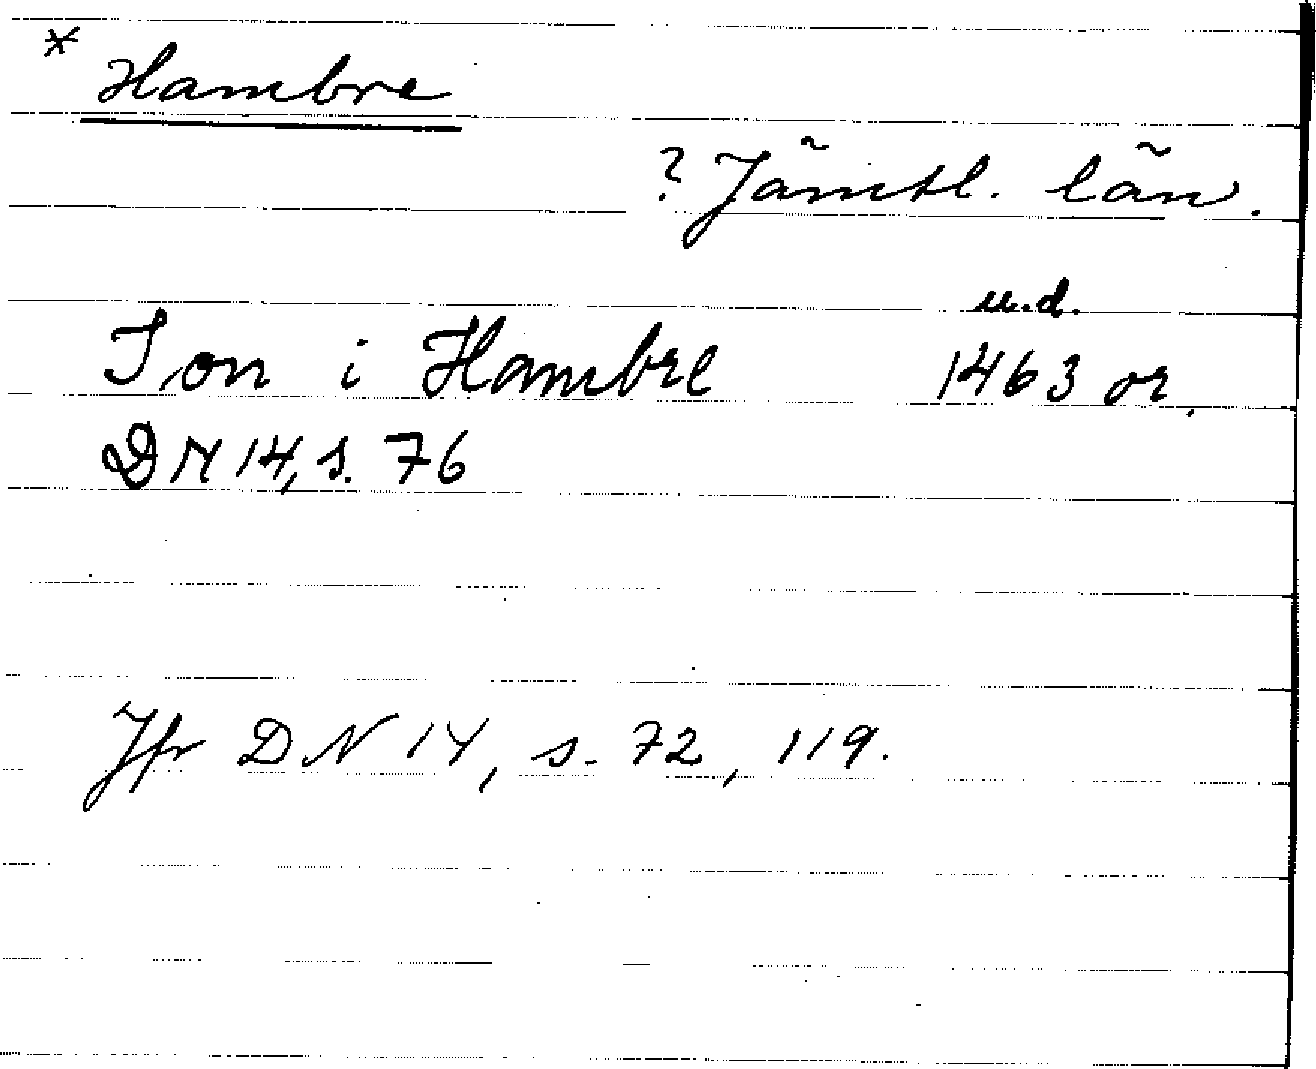 * Hambre
? Jämtl. län.
u.d.
Jon i Hambre 1463 or.
DN 14, s. 76
Jfr DN 14, s. 72, 119.